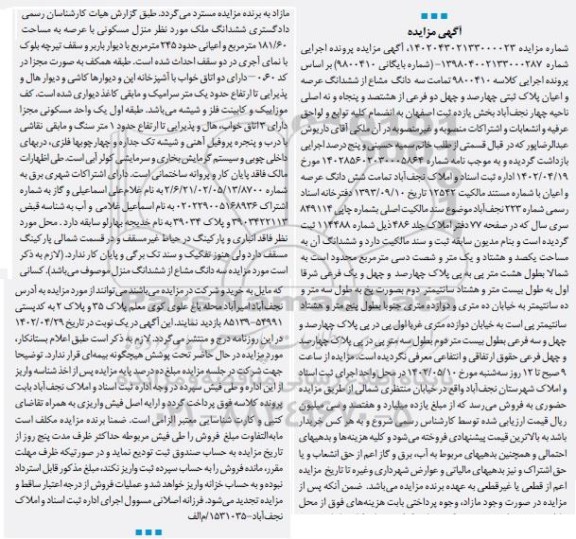 آگهی مزایده
شماره مزایده ۱۴۰۲۰۴۳۰۲۱۳۳۰۰۰۰۲۳، آگهی مزایده پرونده اجرایی
شماره ۱۳۹۸۰۴۰۰۲۱۳۳۰۰۰۲۸۷- (شماره بایگانی ۹۸۰۰۴۱۰) بر اساس
پرونده اجرایی کلاسه ۹۸۰۰۴۱۰ تمامت سه دانگ مشاع از ششدانگ عرصه
و اعیان پلاک ثبتی چهارصد و چهل دو فرعی از هشتصد و پنجاه و نه اصلی
ناحیه چهار نجف‌آباد بخش یازده ثبت اصفهان به انضمام کلیه توابع و لواحق
عرفیه و انشعابات و اشتراکات منصوبه و غیرمنصوبه در آن ملکی آقای داریوش
عبدالرضاپور که در قبال قسمتی از طلب خانم سمیه حسینی و پنج درصد اجرایی
بازداشت گردیده و به موجب نامه شماره ۱۴۰۲۸۵۶۰۲۰۳۰۰۰۵۸۶۴ مورخ
۱۴۰۲/۰۴/۱۹ اداره ثبت اسناد و املاک نجف‌آباد تمامت شش دانگ عرصه
و اعیان با شماره مستند مالکیت ۱۲۵۴۲ تاریخ ۱۳۹۳/۰۹/۱۰ دفترخانه اسناد
رسمی شماره ۲۲۳ نجف‌آباد موضوع سند مالکیت اصلی بشماره چاپی ۸۴۹۱۱۴
سری سال که در صفحه ۷۷ دفتر املاک جلد ۴۸۶ ذیل شماره ۱۱۴۴۸۸ ثبت
گردیده است و بنام مدیون سابقه ثبت و سند مالکیت دارد و ششدانگ آن به
مساحت یکصد و هشتاد و یک متر و شصت دسی مترمربع محدود است به
شمالا بطول هشت متر پی به پی پلاک چهارصد و چهل و یک فرعی شرقا
اول به طول بیست متر و هشتاد سانتیمتر دوم بصورت پخ به طول سه متر و
ده سانتیمتر به خیابان ده متری و دوازده متری جنوبا بطول پنج متر و هشتاد
سانتیمتر پی است به خیابان دوازده متری غربا اول پی در پی پلاک چهارصد و
چهل و سه فرعی بطول بیست متر دوم بطول سه متر پی در پی پلاک چهارصد
و چهل فرعی حقوق ارتفاقی و انتفاعی معرفی نگردیده است، مزایده از ساعت
۹ صبح تا ۱۲ روز سه‌شنبه مورخ ۱۴۰۲/۰۵/۱۰ در محل واحد اجرای ثبت اسناد
و املاک شهرستان نجف‌آباد واقع در خیابان منتظری شمالی از طریق مزایده
حضوری به فروش می‌رسد که از مبلغ یازده میلیارد و هفتصد و سی میلیون
ریال قیمت ارزیابی شده توسط کارشناس رسمی شروع و به هر کس خریدار
باشد به بالاترین قیمت پیشنهادی فروخته می‌شود و کلیه هزینه‌ها و بدهیهای
احتمالی و همچنین بدهیهای مربوط به آب، برق و گاز اعم از حق انشعاب و یا
حق اشتراک و نیز بدهیهای مالیاتی و عوارض شهرداری وغیره تا تاریخ مزایده
اعم از قطعی یا غیرقطعی به عهده برنده مزایده می‌باشد. ضمن آنکه پس از
مزایده در صورت وجود مازاد، وجوه پرداختی بابت هزینه‌های فوق از محل
مازاد به برنده مزایده مسترد می‌گردد. طبق گزارش هیات کارشناسان رسمی
دادگستری ششدانگ ملک مورد نظر منزل مسکونی با عرصه به مساحت
۱۸۱/۶۰ مترمربع و اعیانی حدود ۲۴۵ مترمربع با دیوار باربر و سقف تیرچه بلوک
با نمای آجری در دو سقف احداث شده است. طبقه همکف به صورت مجزا در
کد ۰.۶۰ – دارای دو اتاق خواب با آشپزخانه اپن و دیوارها کاشی و دیوار هال و
پذیرایی تا ارتفاع حدود یک متر سرامیک و مابقی کاغذ دیواری شده است. کف
موزاییک و کابینت فلز و شیشه می‌باشد. طبقه اول یک واحد مسکونی مجزا
دارای ۳ اتاق خواب، هال و پذیرایی تا ارتفاع حدود ۱ متر سنگ و مابقی نقاشی
با درب و پنجره پروفیل آهنی و شیشه تک جداره و چهارچوبها فلزی، دربهای
داخلی چوبی و سیستم گرمایش بخاری و سرمایشی کولر آبی است. طی اظهارات
مالک فاقد پایان کار و پروانه ساختمانی است. دارای اشتراکات شهری برق به
شماره ۲/۶/۲۱/۰۲/۰۵/۱۳/۸۷۰۰ به نام غلام علی اسماعیلی و گاز به شماره
اشتراک ۰۲۰۲۲۹۰۰۵۱۶۸۹۳۶ به نام اسماعیل غلامی و آب به شناسه قبض
۳۹۰۳۴۲۲۱۱۳ و پلاک ۳۹۰۳۴ به نام خدیجه بهارلو سابقه دارد. محل مورد
نظر فاقد انباری و پارکینگ در حیاط غیرمسقف و در قسمت شمالی پارکینگ
مسقف دارد ولی هنوز تفکیک و سند تک برگی و پایان کار ندارد. (لازم به ذکر
است مورد مزایده سه دانگ مشاع از ششدانگ منزل موصوف می‌باشد). کسانی
که مایل به خرید و شرکت در مزایده می‌باشند می‌توانند از مورد مزایده به آدرس
نجف‌آباد امیرآباد محله باغ علوی کوی معلم پلاک ۳۵ و پلاک ۲ به کدپستی
۸۵۱۳۹-۵۴۹۹۱ بازدید نمایند. این آگهی در یک نوبت در تاریخ ۱۴۰۲/۰۴/۲۹
در این روزنامه درج و منتشر می‌گردد. لازم به ذکر است طبق اعلام بستانکار،
مورد مزایده در حال حاضر تحت پوشش هیچگونه بیمه‌ای قرار ندارد. توضیحا
جهت شرکت در جلسه مزایده مبلغ ده درصد پایه مزایده پس از اخذ شناسه واریز
از این اداره و طی فیش سپرده در وجه اداره ثبت اسناد و املاک نجف‌آباد بابت
پرونده کلاسه فوق پرداخت گردد و ارایه اصل فیش واریزی به همراه تقاضای
کتبی و کارت شناسایی معتبر الزامی است. ضمنا برنده مزایده مکلف است
مابه‌التفاوت مبلغ فروش را طی فیش مربوطه حداکثر ظرف مدت پنج روز از
تاریخ مزایده به حساب صندوق ثبت تودیع نماید و در صورتیکه ظرف مهلت
مقرر، مانده فروش را به حساب سپرده ثبت واریز نکند، مبلغ مذکور قابل استرداد
نبوده و به حساب خزانه واریز خواهد شد و عملیات فروش از درجه اعتبار ساقط و
مزایده تجدید می‌شود. فرزانه اصلانی مسوول اجرای اداره ثبت اسناد و املاک
نجف‌آباد-۱۵۳۱۰۳۵/م‌الف